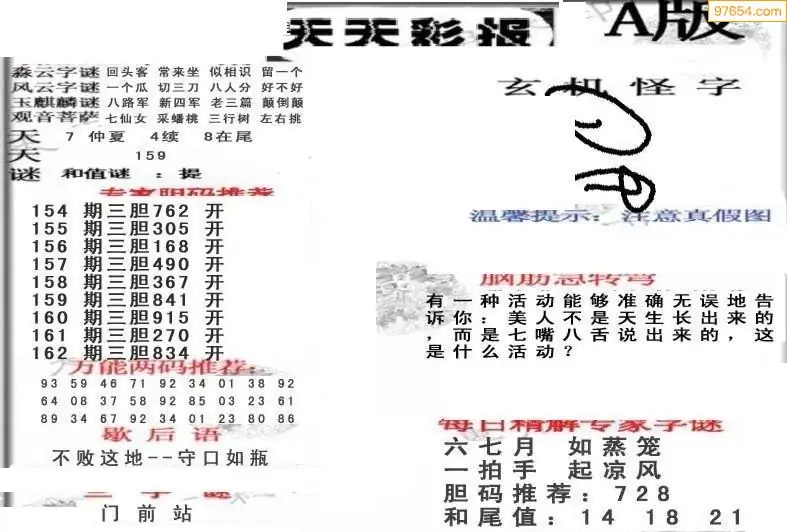 97654.com
天天彩报
A版
森云字谜 回头客 常来坐 似相识 留一个
风云字谜 一个瓜 切三刀 八人分 好不好
玉麒麟谜 八路军 新四军 老三篇 颠倒颠
观音菩萨 七仙女 采蟠桃 三行树 左右挑
天 7 仲夏 4续 8在尾
天 159
谜 和值谜 : 提
专家胆码推荐
154 期三胆762 开
155 期三胆305 开
156 期三胆168 开
157 期三胆490 开
158 期三胆367 开
159 期三胆841 开
160 期三胆915 开
161 期三胆270 开
162 期三胆834 开
万能两码推荐:
93 59 46 71 92 34 01 38 92
64 08 37 58 92 85 03 23 61
89 34 67 92 34 01 23 80 86
歇后语
不败这地--守口如瓶
三字谜
门前站
玄机怪字
温馨提示: 注意真假图
脑筋急转弯
有一种活动能够准确无误地告
诉你: 美人不是天生长出来的
, 而是七嘴八舌说出来的, 这
是什么活动?
每日精解专家字谜
六七月 如蒸笼
一拍手 起凉风
胆码推荐: 728
和尾值: 14 18 21